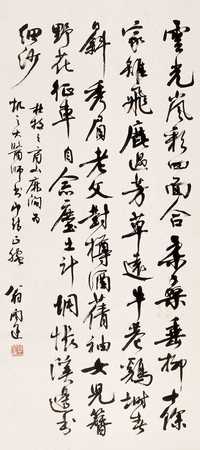 雲光嵐彩四面合柔柔垂柳十餘
家雉飛鹿過芳草遠牛巷雞塒春日
斜秀眉老父對樽酒蒨袖女兒簪
野花征車自念塵土計惆悵溪邊書
細沙
杜牧之商山麻澗為
之大醫師書即請正
翁闓運